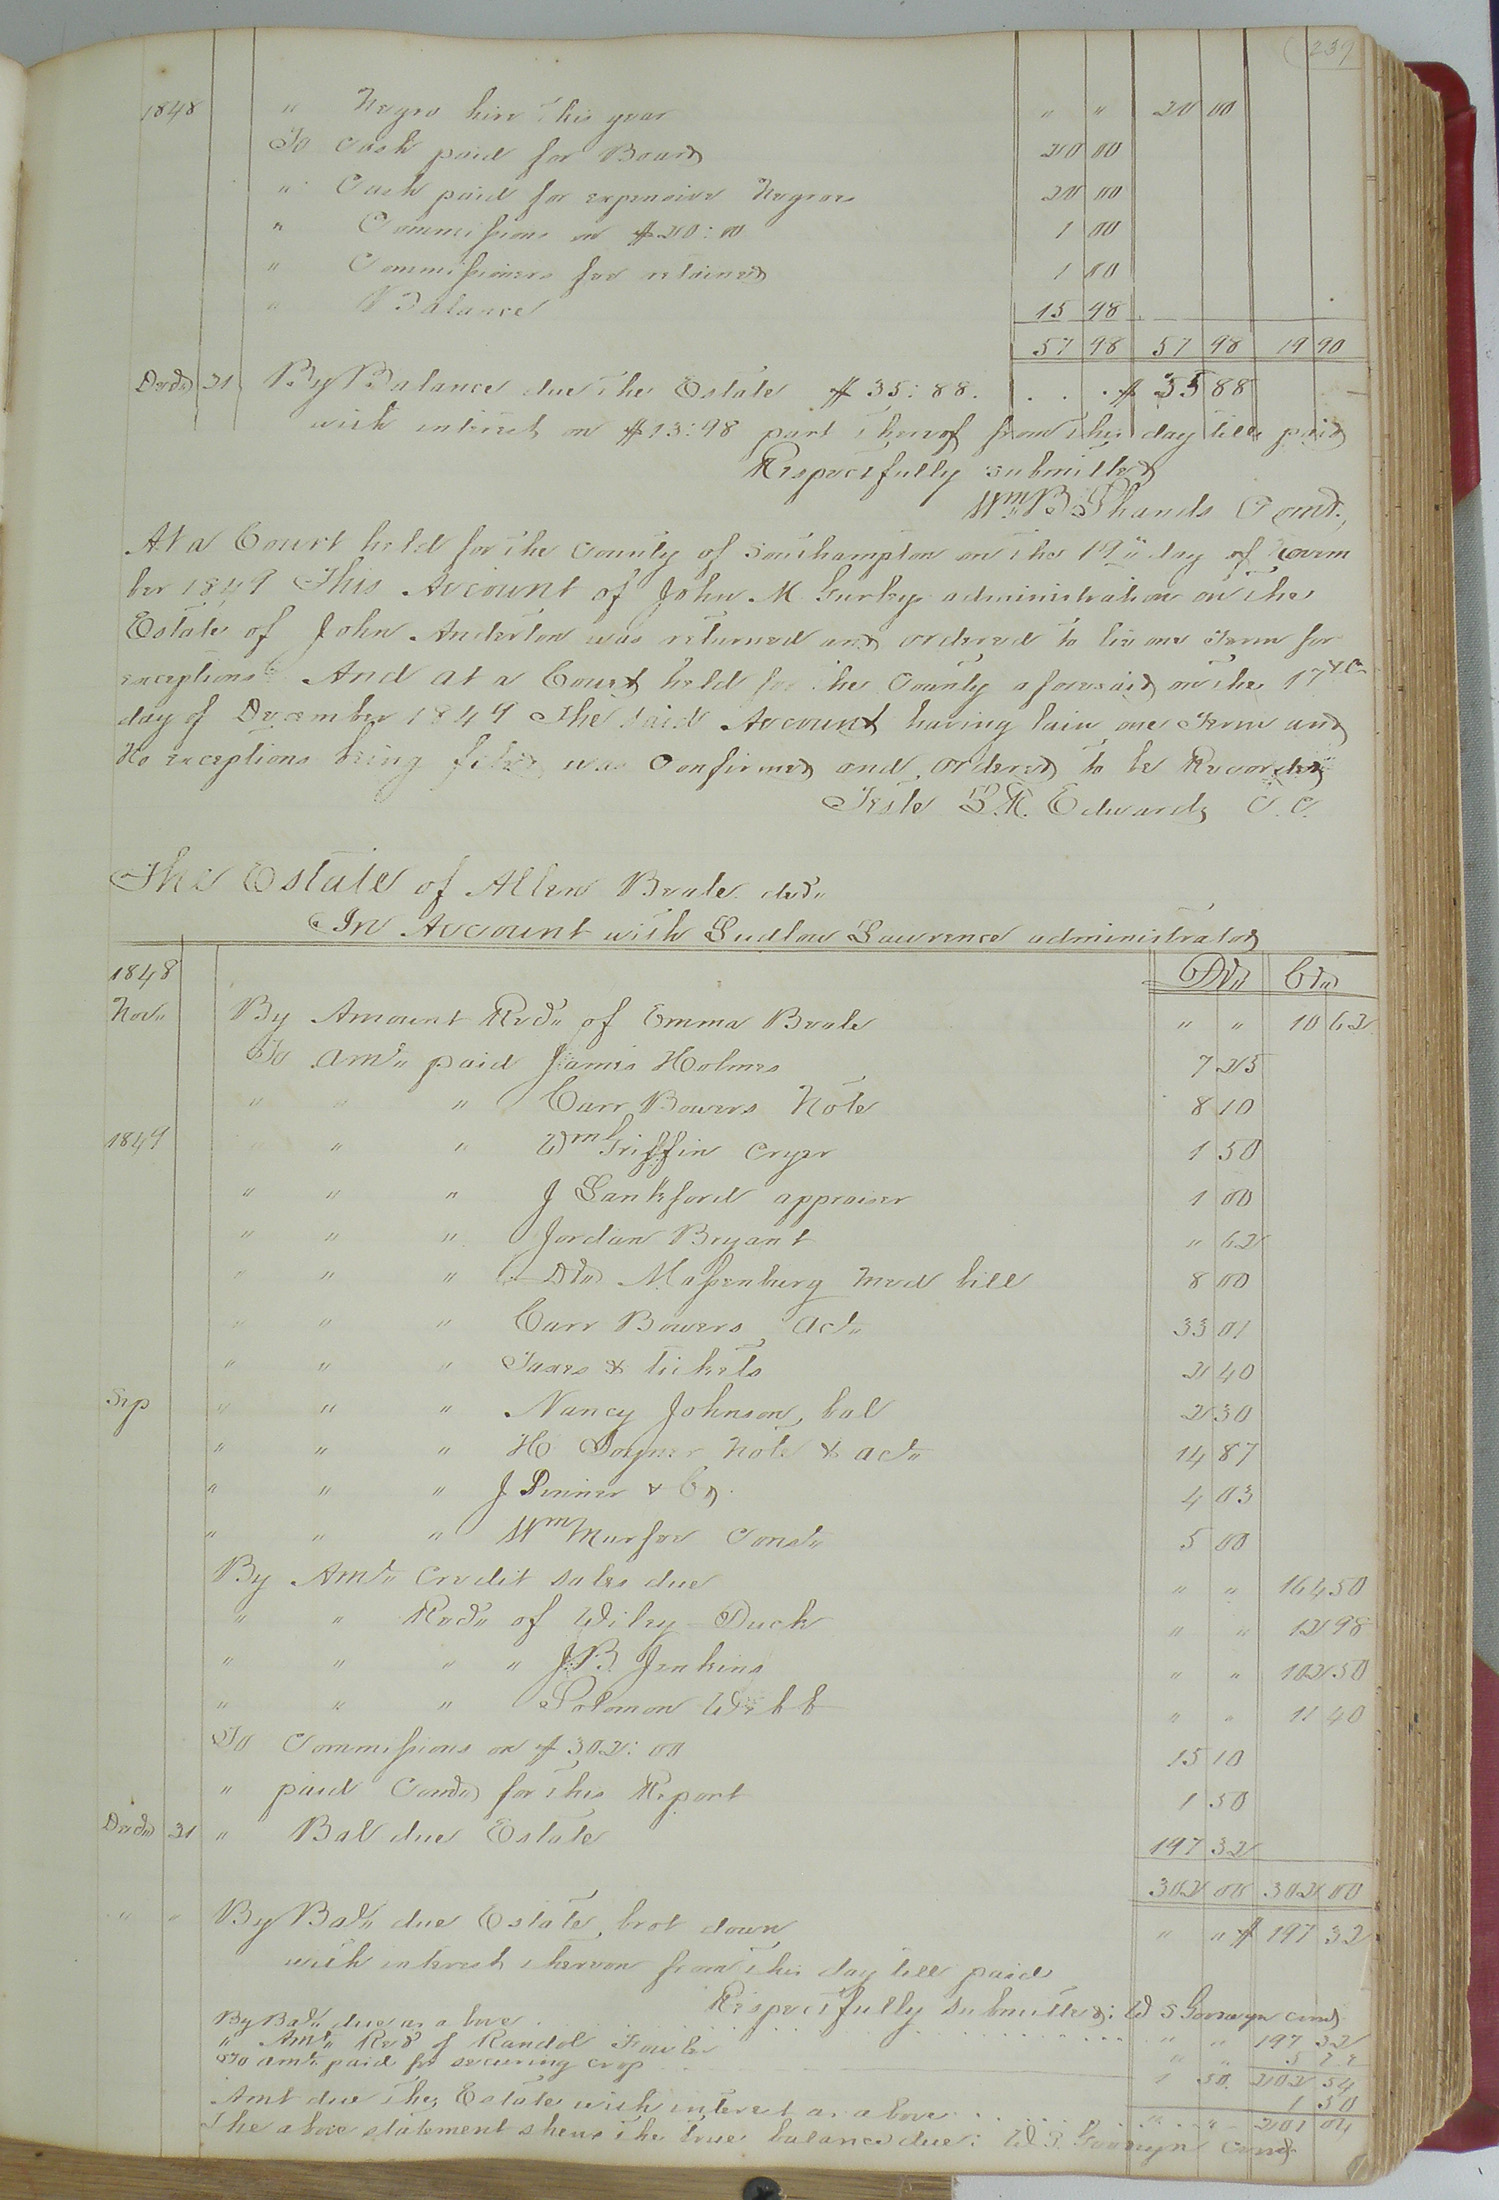 237
1848 " Negro hire this year " " 20 00
To Cash paid for Board 20 00
" Cash paid for expensive Negroes 20 00
" Commissions on $20:00 1 00
" Commissioners fee retained 1 00
" Balance 15 98
57 98 57 98 19 90
Decr 31 By Balance due the Estate $35:88. . . . $ 35 88
with interest on $13:98 part thereof from this day till paid
Respectfully submitted
Wm B Shands Comr.,
At a Court held for the County of Southampton on the 19" day of Novem
ber 1849 This Account of John M Gurley administration on the
Estate of John Anderton was returned and ordered to lie one Term for
exceptions And at a Court held for the County aforesaid on the 17th
day of December 1849 The said Account having lain one Term and
No exceptions being filed was Confirmed and ordered to be Recorded
Teste L.R. Edwards C.C.
The Estate of Allen Beale decd"
In Account with Ludlow Lawrence administrator
1848 Dr" Cr"
Nov" By Amount Recd" of Emma Beale " " 10 62
To amt" paid James Holmes 7 25
" " " Carr Bowers Note 8 10
1849 " " " Wm Griffin Cryer 1 50
" " " J Lankford appraiser 1 00
" " " Jordan Bryant " 62
" " " Dr" Massenburg Med bill 8 00
" " " Carr Bowers Act" 33 01
" " " Taxes & tickets 2 40
Sep " " " Nancy Johnson, bal 2 30
" " " H Joyner Note & act" 14 87
" " " J Denner & Co. 4 03
" " " Wm Murfee Const" 5 00
By Amt" Credit sales due " " 164 50
" " Recd" of Wiley Duck " " 12 98
" " " " J.B. Jenkins " " 102 50
" " " Solomon Webb " " 11 40
To Commissions on $302:00 15 10
" paid Comr for this Report 1 50
Decr 31 " Bal due Estate 197 32
302 00 302 00
" " By Bal" due Estate, brot down " " $ 197 32
with interest thereon from this day till paid
Respectfully submitted: W S Goodwyn comr
By Bal" due as above " " 197 32
" Amt" Recd of Randol Fowler " " 5 22
To amt" paid for securing crop 1 50. 202 54
1 50
Amt due the Estate with interest as above " " 201 04
The above statement shews the true balance due: W. S. Goodwyn comr